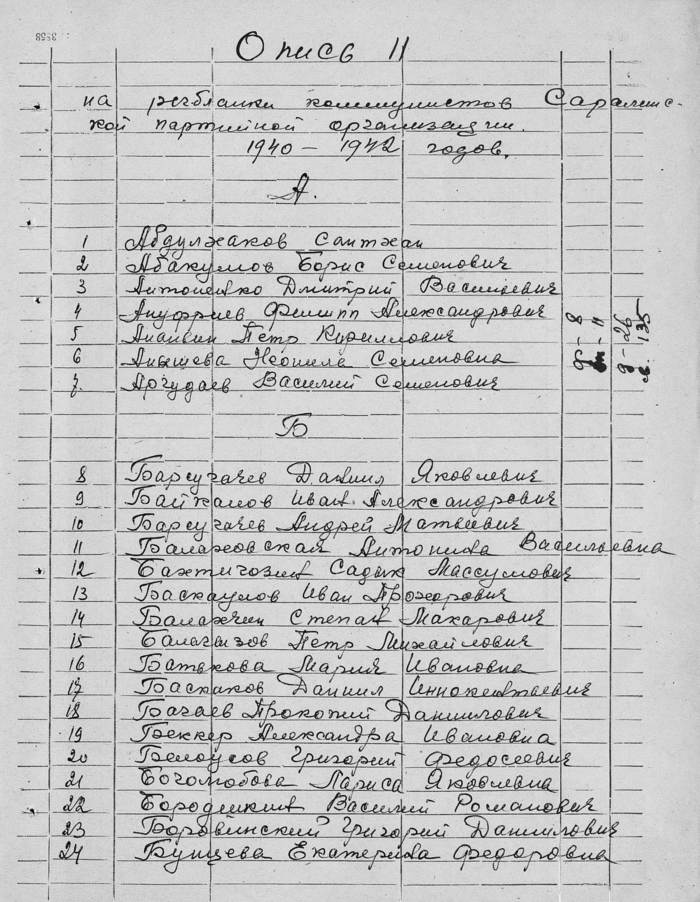 Опись 11
на регбланки коммунистов Саралинс-
кой партийной организации.
1940 - 1942 годов.
А.
1 Абдулжаков Саитжан
2 Абакумов Борис Семенович
3 Антоненко Дмитрий Васильевич
4 Ануфриев Филипп Александрович
5 Ананьин Петр Кириллович
6 Анышева Неонила Семеновна
7. Аргудаев Василий Семенович
ф - 8
оп - 11
д - 26
л. 135
Б
8 Барсугачев Даниил Яковлевич
9 Байкалов Иван Александрович
10 Барсугачев Андрей Матвеевич
11 Балаховская Антонина Васильевна
12 Бахтигозин Садык Массумович
13 Баскаулов Иван Прохорович
14 Балахчин Степан Макарович
15 Балагызов Петр Михайлович
16 Батькова Мария Ивановна
17 Баскаков Даниил Иннокентьевич
18 Багаев Прокопий Данилович
19 Беккер Александра Ивановна
20 Белоусов Григорий Федосеевич
21 Боголюбова Лариса Яковлевна
22 Бородинкин Василий Романович
23 Боровинский Григорий Данилович
24 Бунцева Екатерина Федоровна
3558